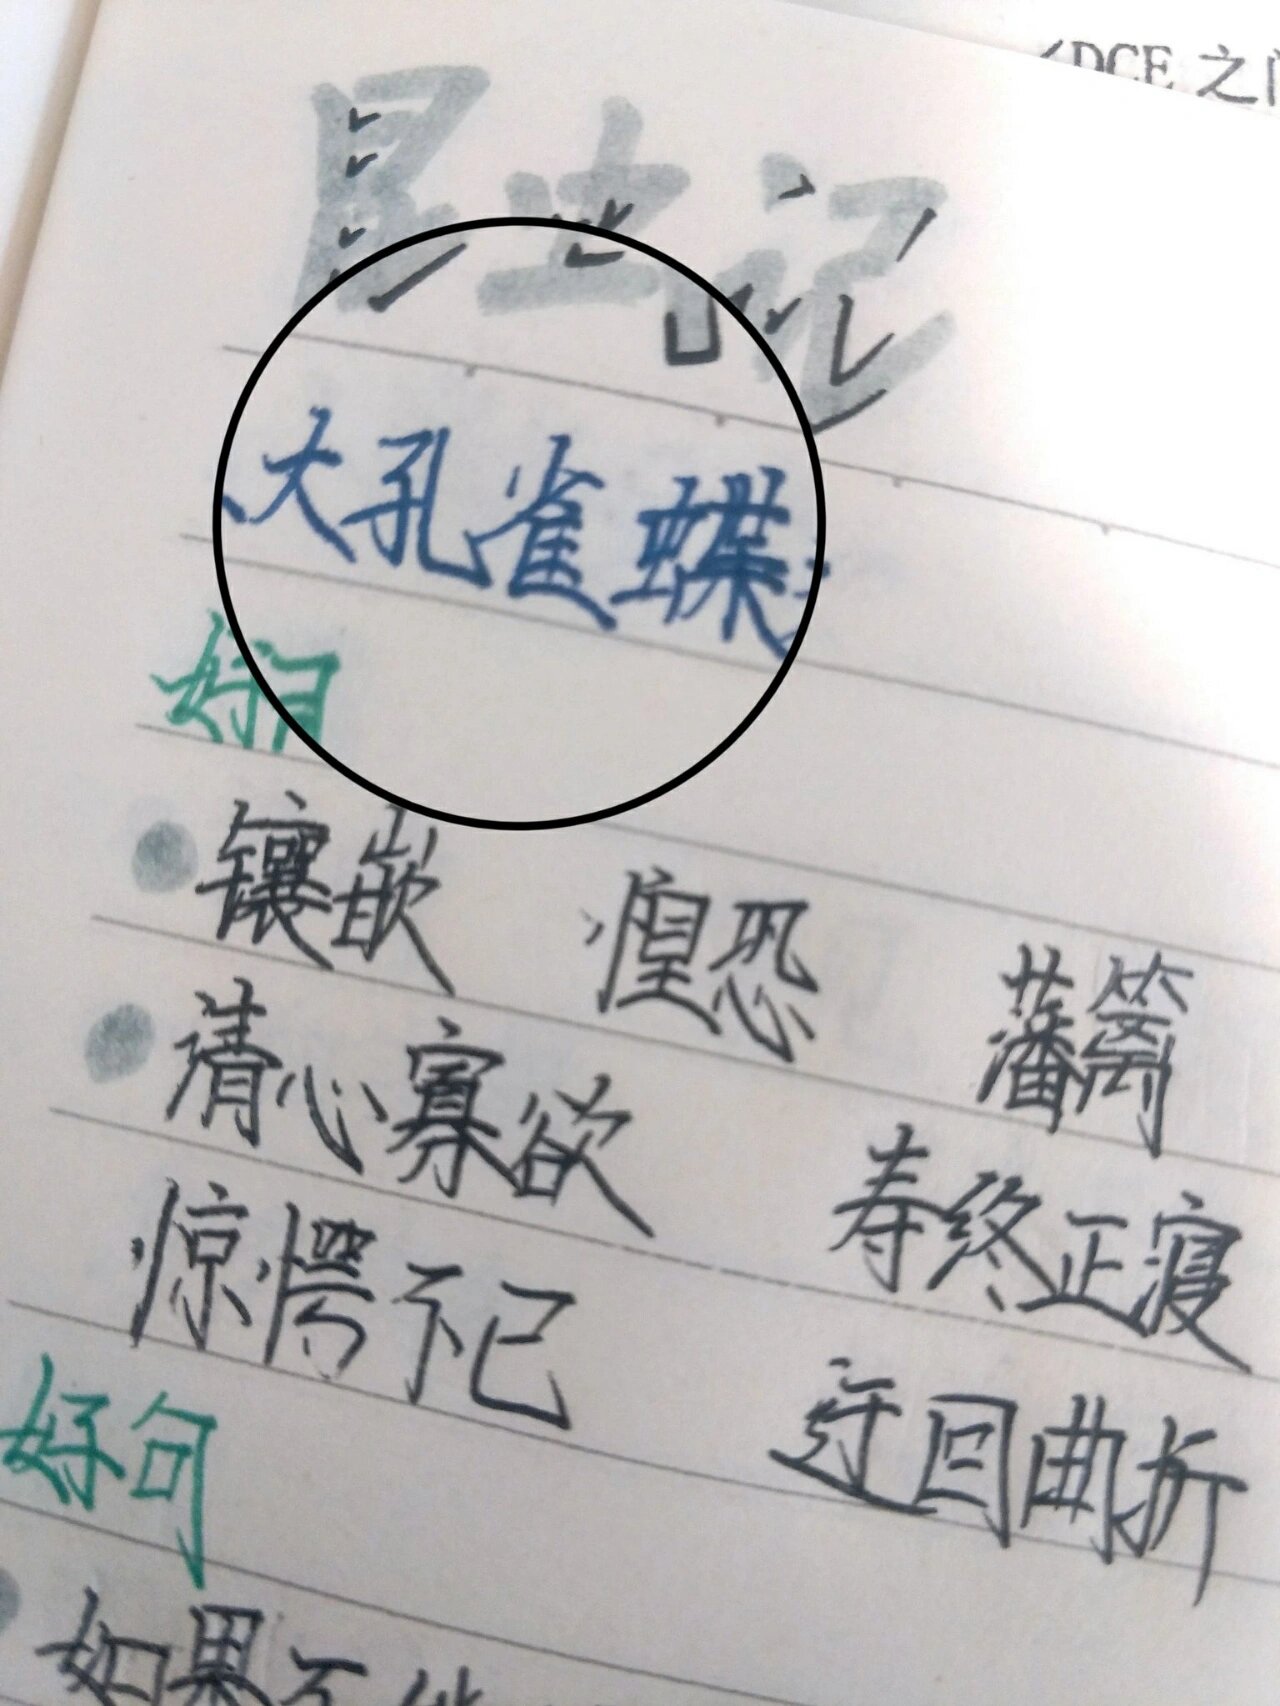 ∠DCE 之间
昆虫记
大孔雀蝶
好词
镶嵌 惶恐 藩篱
清心寡欲 寿终正寝
惊愕不已 迂回曲折
好句
如果不能